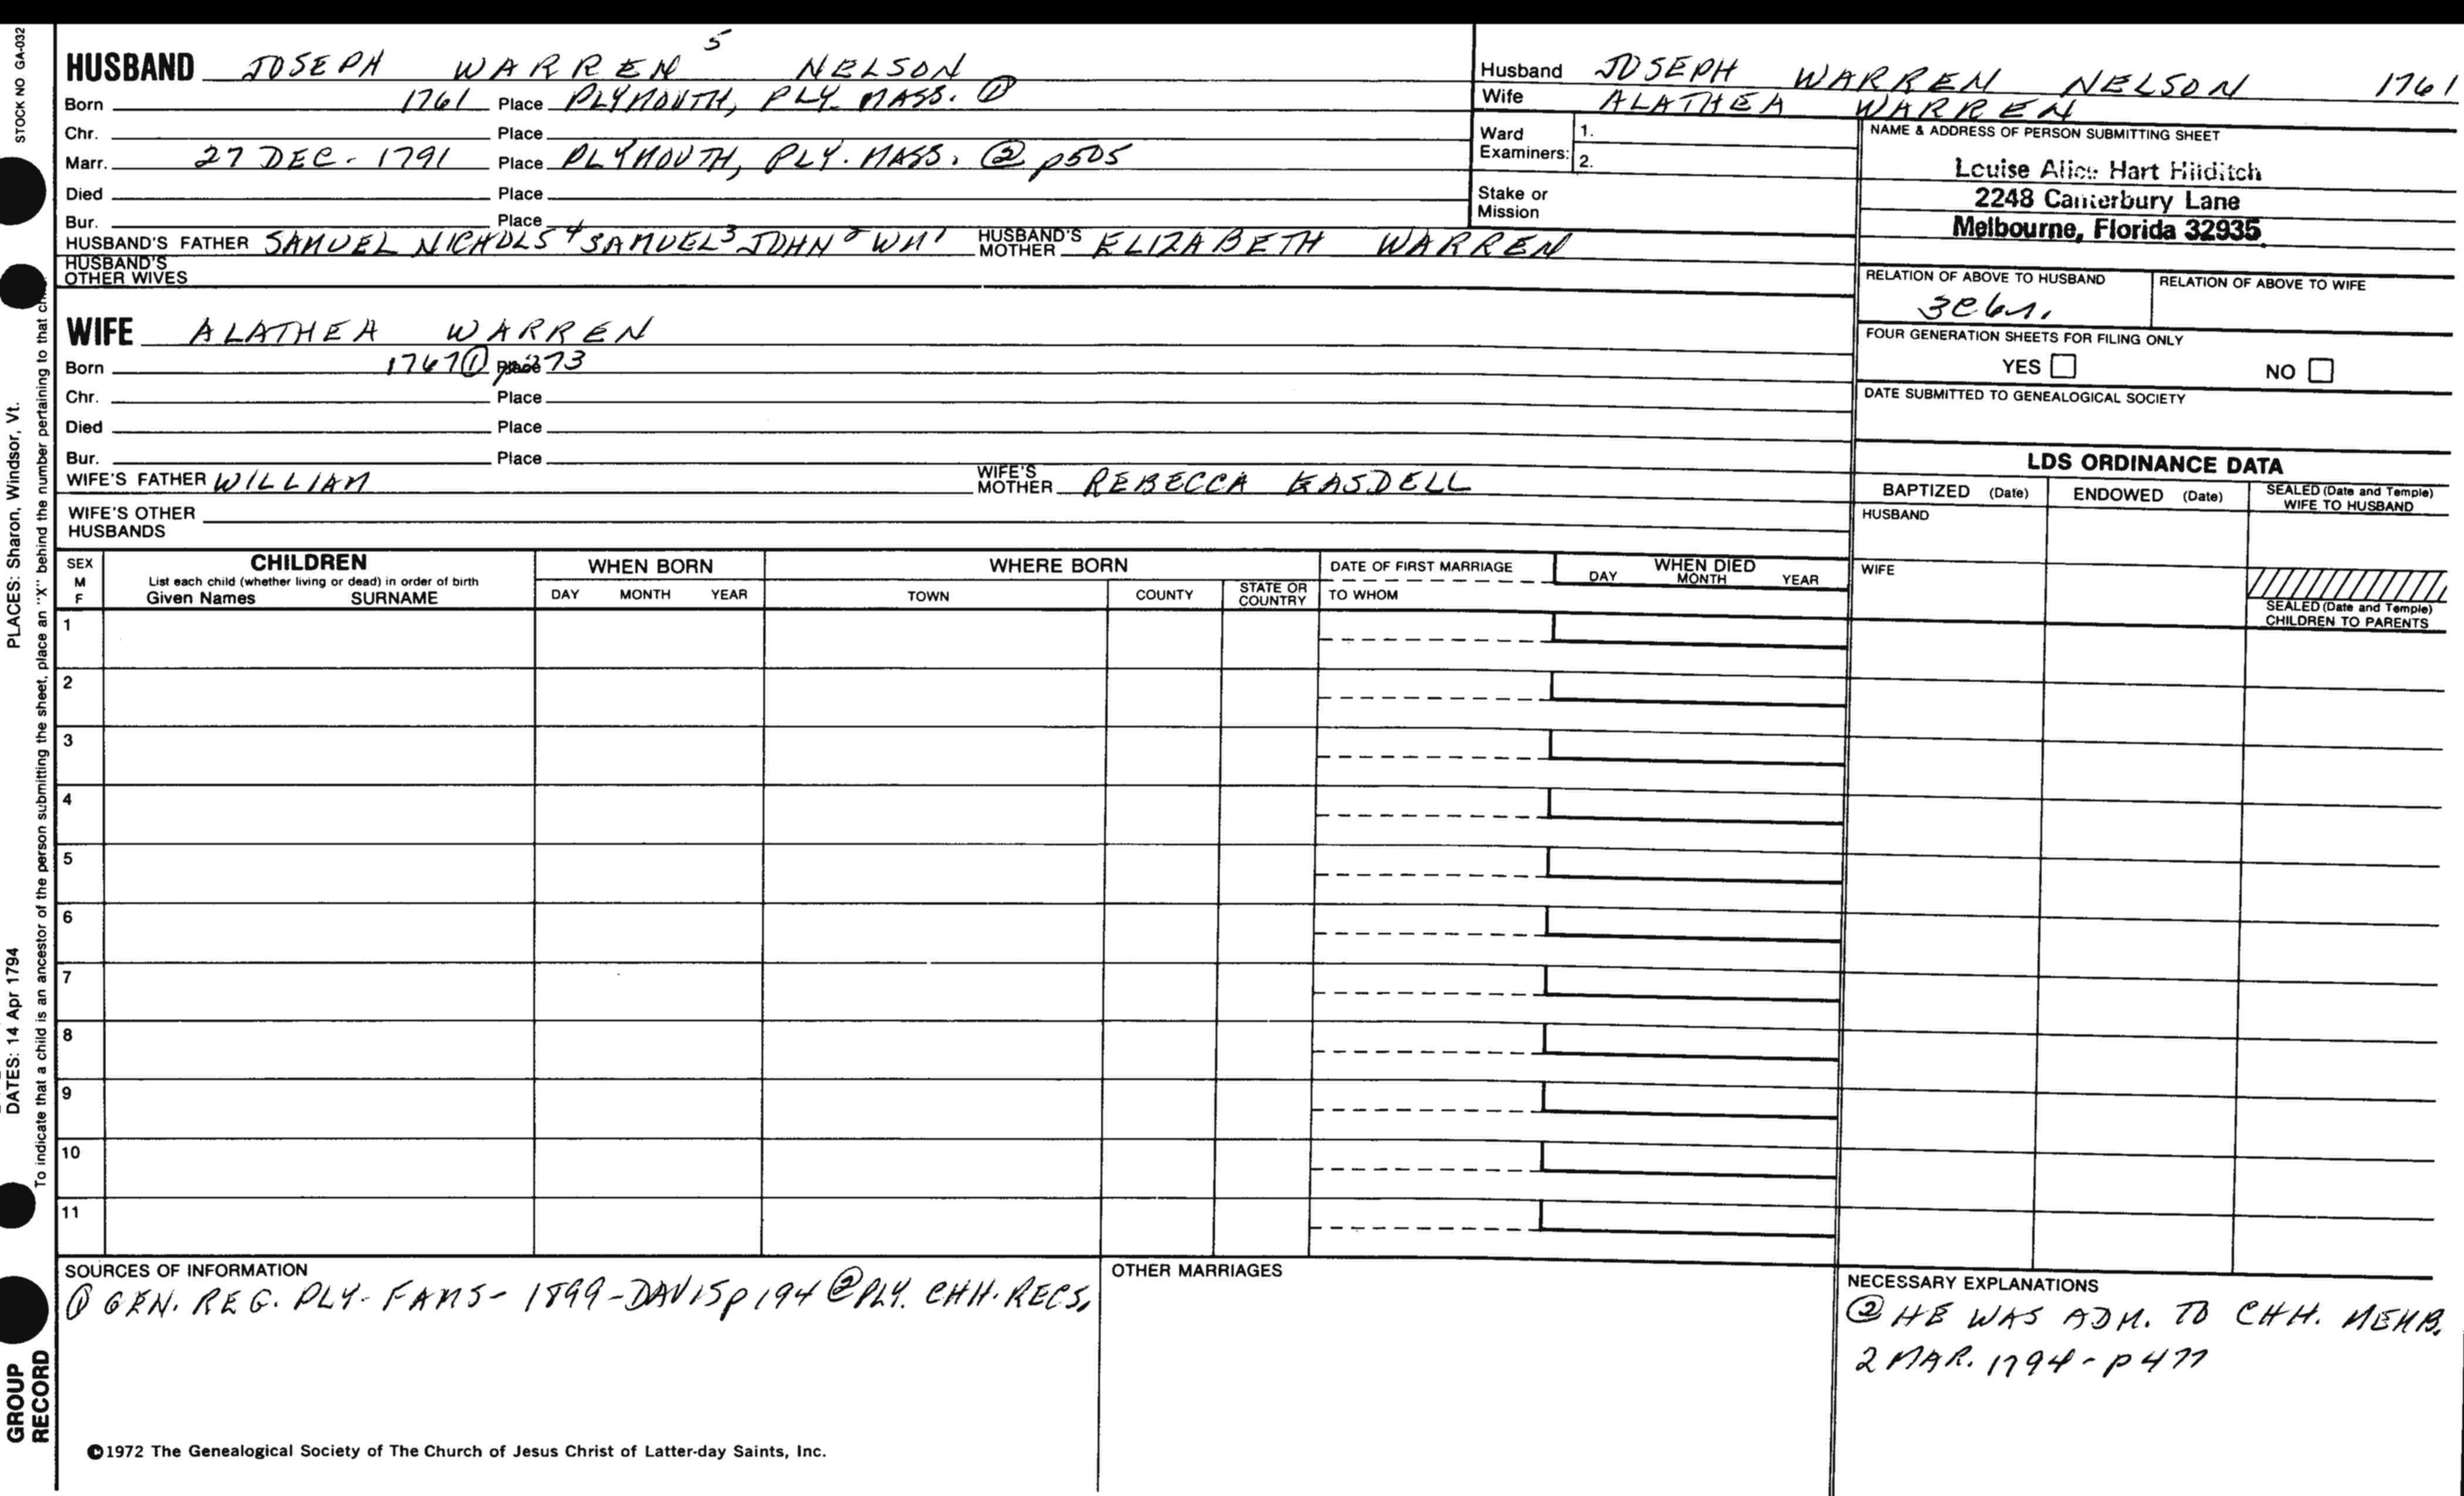 STOCK NO GA-032
PLACES: Sharon, Windsor, Vt.
DATES: 14 Apr 1794
To indicate that a child is an ancestor of the person submitting the sheet, place an "X" behind the number pertaining to that
GROUP
RECORD
HUSBAND JOSEPH WARREN 5 NELSON
Born 1761 Place PLYMOUTH, PLY. MASS. ①
Chr. Place
Marr. 27 DEC. 1791 Place PLYMOUTH, PLY. MASS. ② p505
Died Place
Bur. Place
HUSBAND'S FATHER SAMUEL NICHOLS 4 SAMUEL 3 JOHN 2 WM 1 HUSBAND'S MOTHER ELIZABETH WARREN
HUSBAND'S
OTHER WIVES
WIFE ALATHEA WARREN
Born 1767 ① Place p273
Chr. Place
Died Place
Bur. Place
WIFE'S FATHER WILLIAM WIFE'S MOTHER REBECCA EASDELL
WIFE'S OTHER
HUSBANDS
Husband JOSEPH WARREN NELSON 1761
Wife ALATHEA WARREN
Ward Examiners: 1.
2.
Stake or
Mission
NAME & ADDRESS OF PERSON SUBMITTING SHEET
Louise Alice Hart Hilditch
2248 Canterbury Lane
Melbourne, Florida 32935
RELATION OF ABOVE TO HUSBAND RELATION OF ABOVE TO WIFE
FOUR GENERATION SHEETS FOR FILING ONLY
YES NO
DATE SUBMITTED TO GENEALOGICAL SOCIETY
LDS ORDINANCE DATA
BAPTIZED (Date) ENDOWED (Date) SEALED (Date and Temple) WIFE TO HUSBAND
HUSBAND
WIFE
SEALED (Date and Temple)
CHILDREN TO PARENTS
SEX M F CHILDREN WHEN BORN WHERE BORN DATE OF FIRST MARRIAGE WHEN DIED
List each child (whether living or dead) in order of birth
Given Names SURNAME DAY MONTH YEAR TOWN COUNTY STATE OR COUNTRY TO WHOM DAY MONTH YEAR
1
2
3
4
5
6
7
8
9
10
11
SOURCES OF INFORMATION
① GEN. REG. PLY. FAMS - 1899 - DAVIS p194 ② PLY. CHH. RECS.
OTHER MARRIAGES
NECESSARY EXPLANATIONS
② HE WAS ADM. TO CHH. MEMB.
2 MAR. 1794 - p477
©1972 The Genealogical Society of The Church of Jesus Christ of Latter-day Saints, Inc.